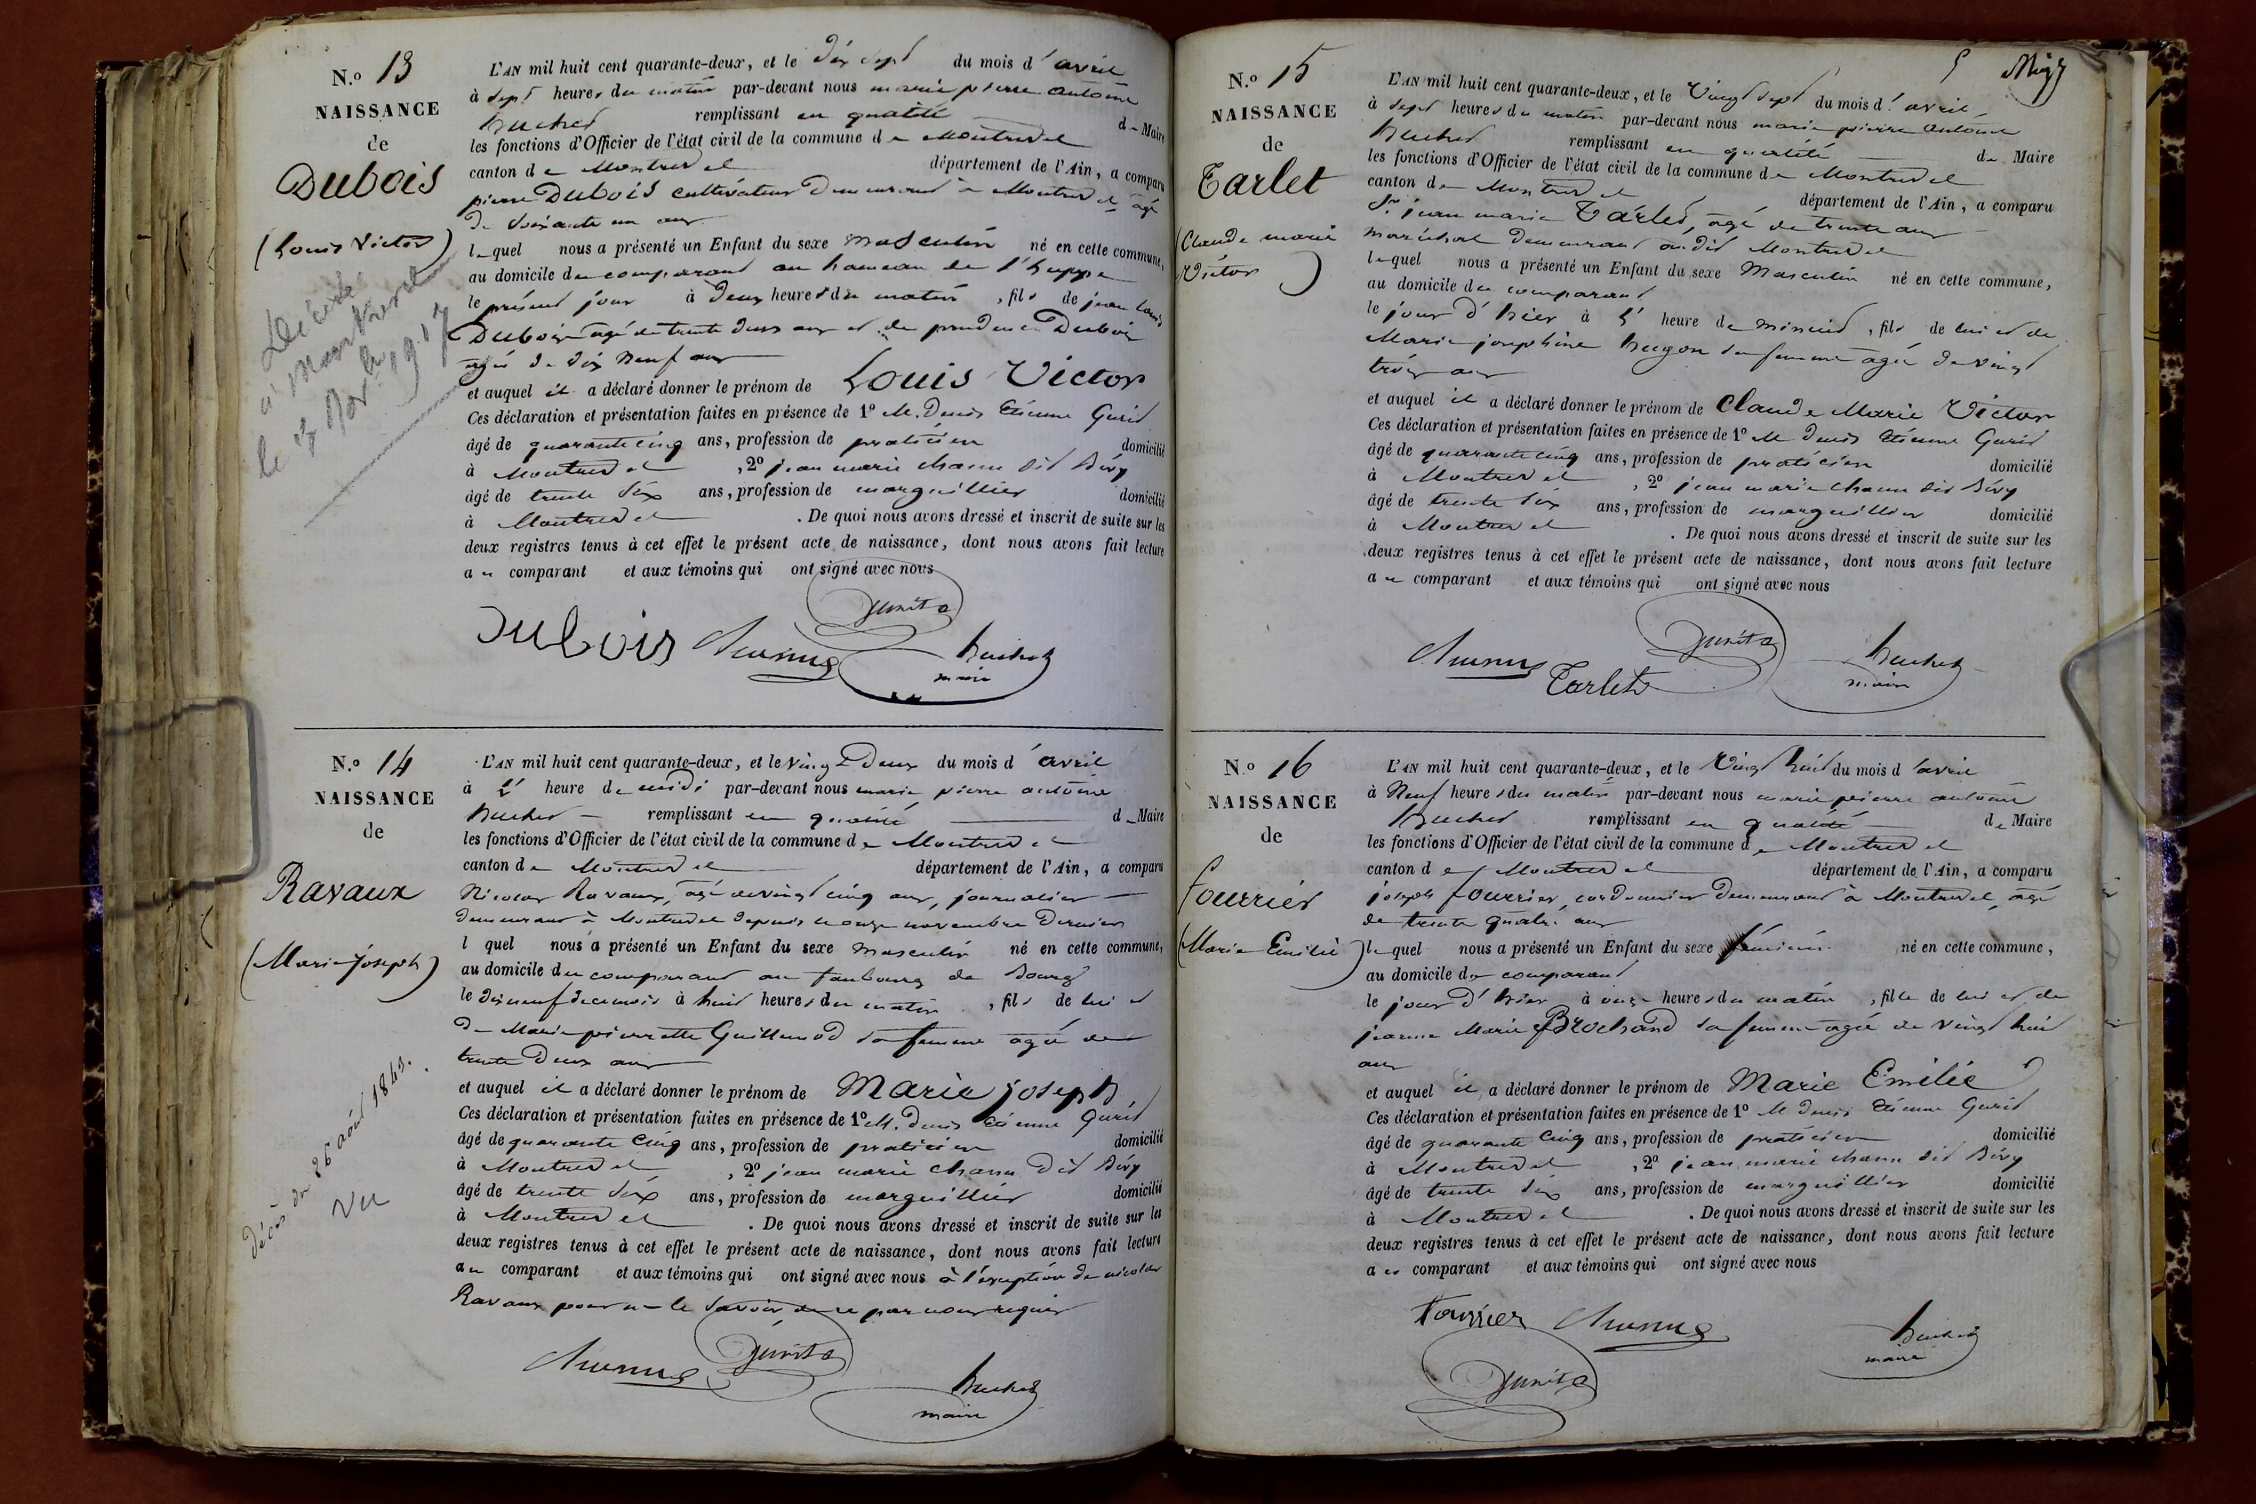 N.o 13
NAISSANCE
de
Dubois
(Louis Victor)
Décédé
à Montrevel
le 13 Nov. 1917
L'AN mil huit cent quarante-deux, et le dix sept du mois d'avril
à sept heures du matin par-devant nous marie pierre antoine
huchet remplissant en qualité de Maire
les fonctions d'Officier de l'état civil de la commune de Montrevel
canton de Montrevel département de l'Ain, a comparu
pierre Dubois cultivateur demeurant à Montrevel, agé
de soixante un ans
lequel nous a présenté un Enfant du sexe masculin né en cette commune,
au domicile du comparant au hameau de l'huppe
le présent jour à deux heures du matin, fils de jean Louis
Dubois agé de trente deux ans et de prudence Dubois
agée de dix neuf ans
et auquel il a déclaré donner le prénom de Louis Victor
Ces déclaration et présentation faites en présence de 1o M. Denis Etienne
âgé de quarante cinq ans, profession de praticien domicilié
à Montrevel, 2o jean marie chanu dit
âgé de trente six ans, profession de marguillier domicilié
à Montrevel. De quoi nous avons dressé et inscrit de suite sur les
deux registres tenus à cet effet le présent acte de naissance, dont nous avons fait lecture
au comparant et aux témoins qui ont signé avec nous
Dubois
huchet
maire
N.o 14
NAISSANCE
de
Ravaux
(Marie joseph)
décès du 26 août 1843.
Vu
L'AN mil huit cent quarante-deux, et le vingt deux du mois d'avril
à heure de midi par-devant nous marie pierre antoine
huchet remplissant en qualité de Maire
les fonctions d'Officier de l'état civil de la commune de Montrevel
canton de Montrevel département de l'Ain, a comparu
Nicolas Ravaux, agé de vingt cinq ans, journalier
demeurant à Montrevel depuis le onze novembre dernier
lquel nous a présenté un Enfant du sexe masculin né en cette commune,
au domicile du comparant au faubourg de Bourg
le dix neuf de ce mois à huit heures du matin, fils de lui et
de Marie pierrette Guillemod sa femme agée de
trente deux ans
et auquel il a déclaré donner le prénom de Marie joseph
Ces déclaration et présentation faites en présence de 1o M. Denis Etienne
âgé de quarante cinq ans, profession de praticien domicilié
à Montrevel, 2o jean marie chanu dit
âgé de trente six ans, profession de marguillier domicilié
à Montrevel. De quoi nous avons dressé et inscrit de suite sur les
deux registres tenus à cet effet le présent acte de naissance, dont nous avons fait lecture
au comparant et aux témoins qui ont signé avec nous à l'exception de nicolas
Ravaux pour ne le savoir de ce par nous requis
huchet
maire
N.o 15
NAISSANCE
de
Tarlet
(Claude marie
Victor)
5
L'AN mil huit cent quarante-deux, et le Vingt sept du mois d'avril
à sept heures du matin par-devant nous marie pierre antoine
huchet remplissant en qualité de Maire
les fonctions d'Officier de l'état civil de la commune de Montrevel
canton de Montrevel département de l'Ain, a comparu
Sr. jean marie Tarlet, agé de trente ans
maréchal demeurant audit Montrevel
lequel nous a présenté un Enfant du sexe Masculin né en cette commune,
au domicile du comparant
le jour d'hier à heure de minuit, fils de lui et de
Marie josephine hugon sa femme agée de vingt
trois ans
et auquel il a déclaré donner le prénom de Claude Marie Victor
Ces déclaration et présentation faites en présence de 1o M Denis Etienne
âgé de quarante cinq ans, profession de praticien domicilié
à Montrevel, 2o jean marie chanu dit
âgé de trente six ans, profession de marguillier domicilié
à Montrevel. De quoi nous avons dressé et inscrit de suite sur les
deux registres tenus à cet effet le présent acte de naissance, dont nous avons fait lecture
au comparant et aux témoins qui ont signé avec nous
Tarlet
huchet
maire
N.o 16
NAISSANCE
de
fourrier
(Marie Emilie)
L'AN mil huit cent quarante-deux, et le Vingt huit du mois d'avril
à Neuf heures du matin par-devant nous marie pierre antoine
huchet remplissant en qualité de Maire
les fonctions d'Officier de l'état civil de la commune de Montrevel
canton de Montrevel département de l'Ain, a comparu
joseph fourrier, cordonnier demeurant à Montrevel, agé
de trente quatre ans
lequel nous a présenté un Enfant du sexe féminin né en cette commune,
au domicile du comparant
le jour d'hier à onze heures du matin, fille de lui et de
jeanne Marie Brochand sa femme agée de vingt huit
ans
et auquel il a déclaré donner le prénom de Marie Emilie
Ces déclaration et présentation faites en présence de 1o M Denis Etienne
âgé de quarante cinq ans, profession de praticien domicilié
à Montrevel, 2o jean marie chanu dit
âgé de trente six ans, profession de marguillier domicilié
à Montrevel. De quoi nous avons dressé et inscrit de suite sur les
deux registres tenus à cet effet le présent acte de naissance, dont nous avons fait lecture
au comparant et aux témoins qui ont signé avec nous
fourrier
huchet
maire